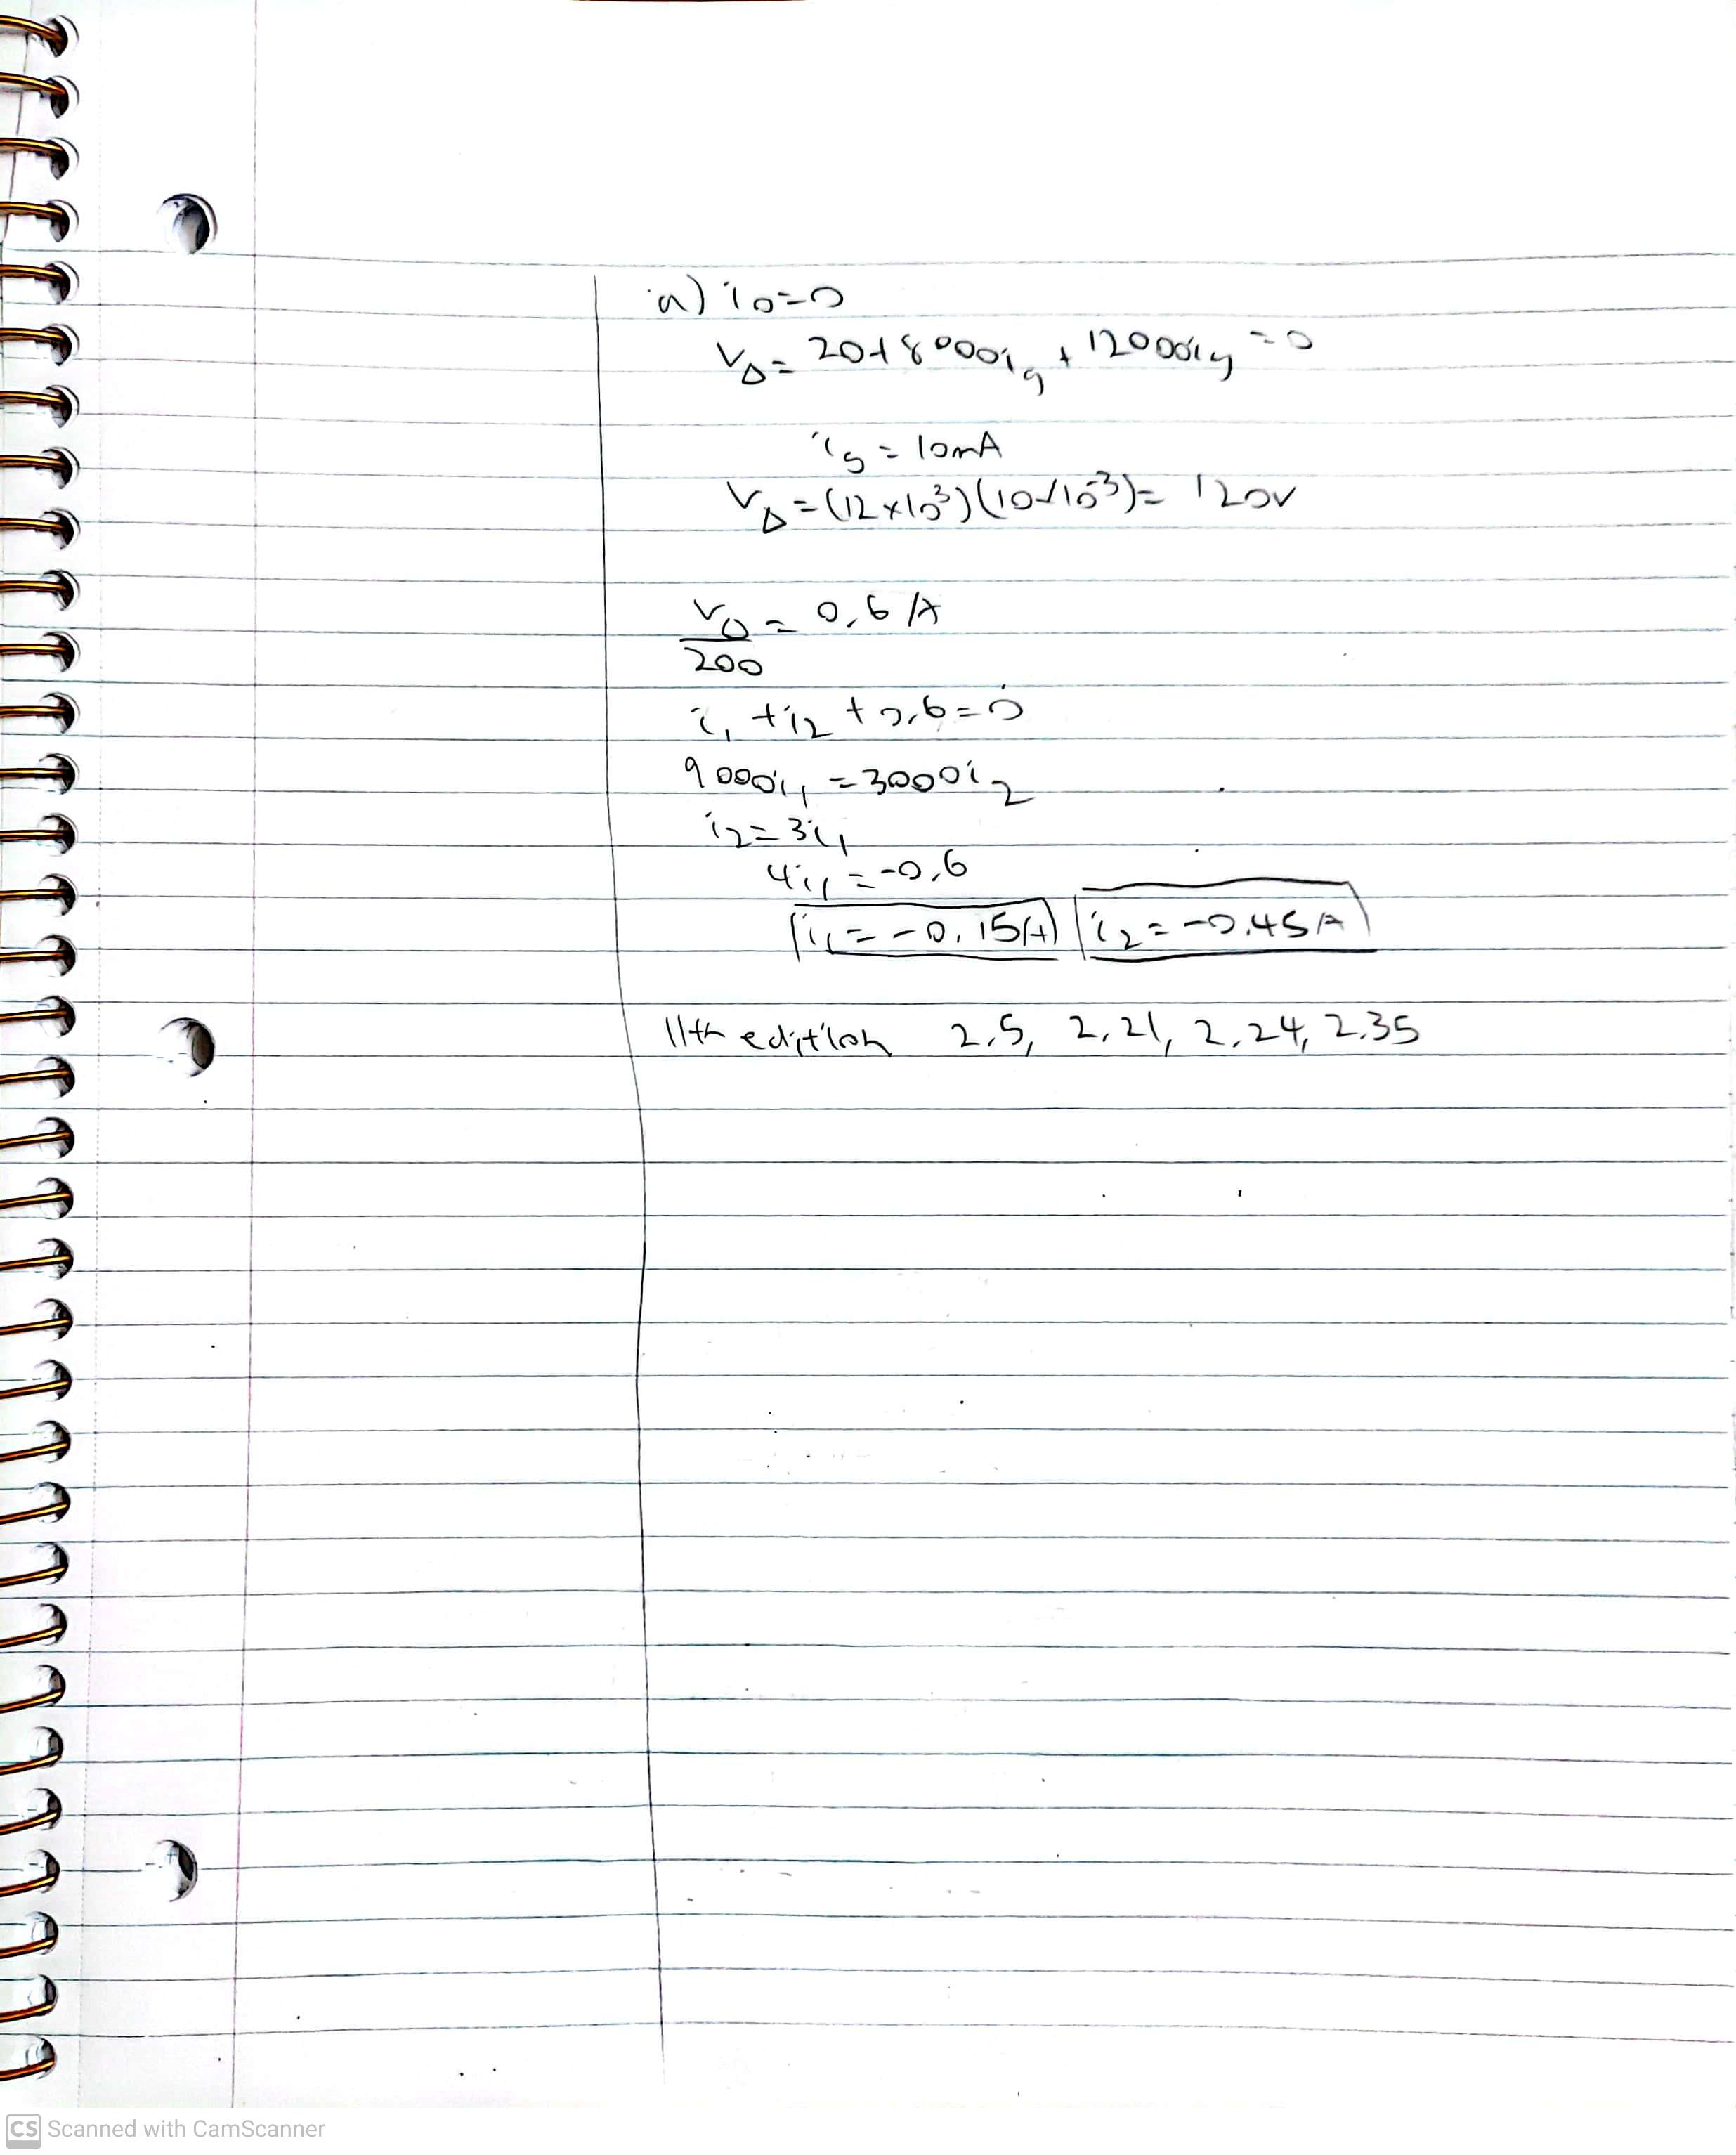 a) i₀=0
V_Δ = 20+8000i_g + 12000i_g = 0
i_g = 10mA
V_Δ = (12x10³)(10x10⁻³) = 120V
V_0 = 0,6 A
200
i₁ + i₂ + 0,6 = 0
9000i₁ = 3000i₂
i₂ = 3i₁
4i₁ = -0,6
i₁ = -0.15A i₂ = -0.45A
11th edition 2,5, 2,21, 2,24, 2.35
CS Scanned with CamScanner